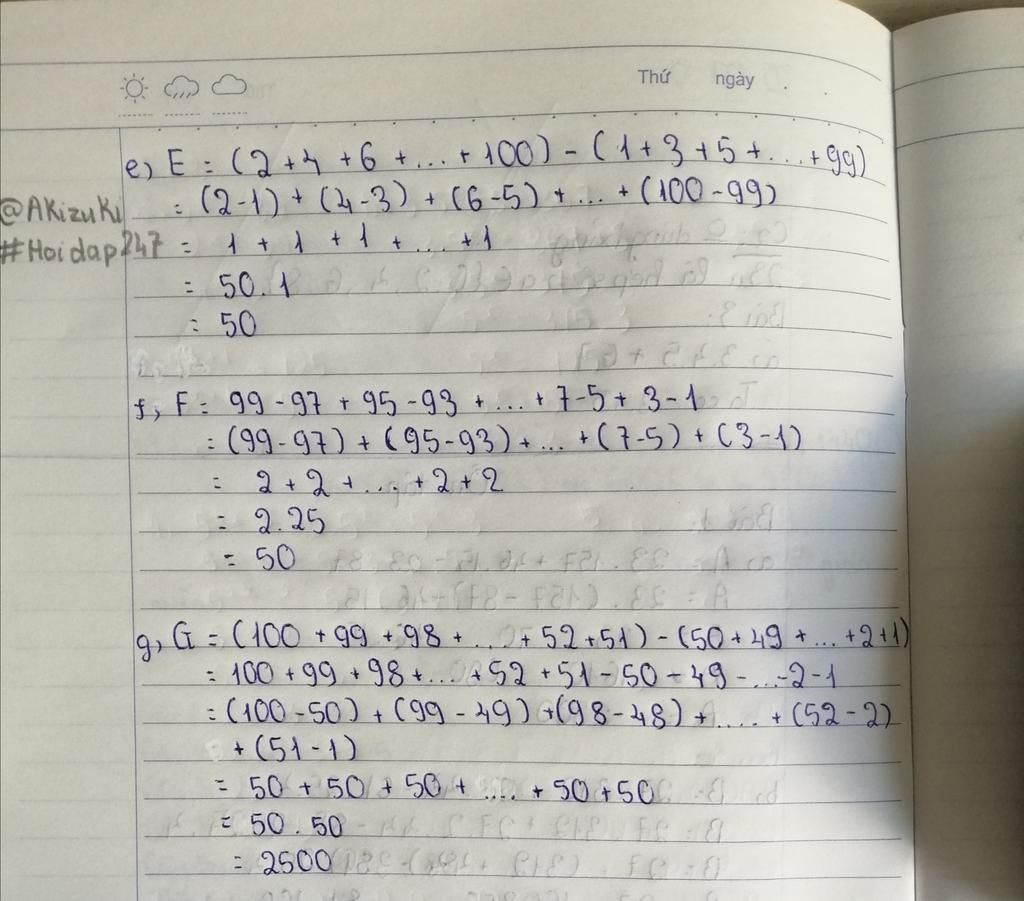 Thứ ngày
e, E = (2+4+6+...+100) - (1+3+5+...+99)
@Akizuki = (2-1) + (4-3) + (6-5) + ... + (100-99)
#Hoidap247 = 1 + 1 + 1 + ... + 1
= 50.1
= 50
f, F = 99-97 + 95-93 + ... + 7-5 + 3-1
= (99-97) + (95-93) + ... + (7-5) + (3-1)
= 2 + 2 + ... + 2 + 2
= 2.25
= 50
g, G = (100 + 99 + 98 + ... + 52 + 51) - (50 + 49 + ... + 2 + 1)
= 100 + 99 + 98 + ... + 52 + 51 - 50 - 49 - ... - 2 - 1
= (100-50) + (99-49) + (98-48) + .... + (52-2)
+ (51-1)
= 50 + 50 + 50 + .... + 50 + 50
= 50.50
= 2500